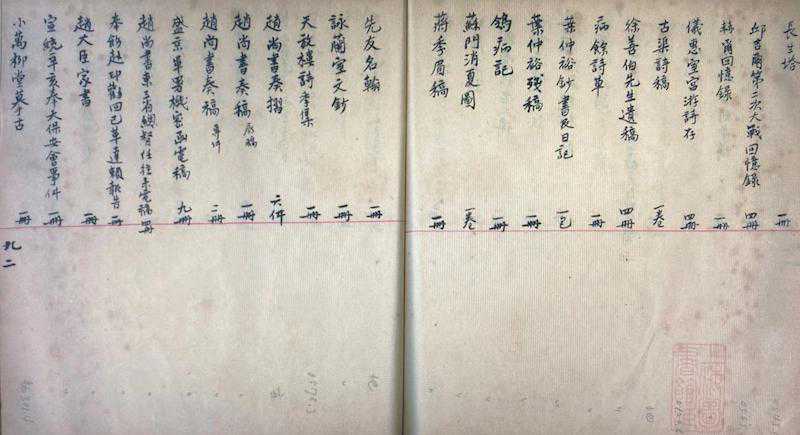 長生塔 一冊
邱吉爾第二次大戰回憶錄 四冊
赫爾回憶錄 一冊
儀思室宦游詩存 四冊
古梁詩稿 一卷
徐善伯先生遺稿 四冊
病餘詩草 一冊
葉仲裕鈔書及日記 一包
葉仲裕殘稿 一冊
鴿病記 一冊
蘇門消夏圖 一卷
蔣季眉稿 一冊
先友名翰 一冊
詠蘭室文鈔 一冊
天放樓詩季集 一冊
趙尚書奏摺 六件
趙尚書奏稿 一冊
趙尚書奏稿 專件 二冊
盛京軍署機密函電稿 九冊
趙尚書東三省總督任往來電稿 四冊
奉飭赴印藏回巴草道賴報告 一冊
趙大臣家書 一冊
宣統辛亥奉天保安會事件 一冊
小萬柳堂摹古 一冊
九二